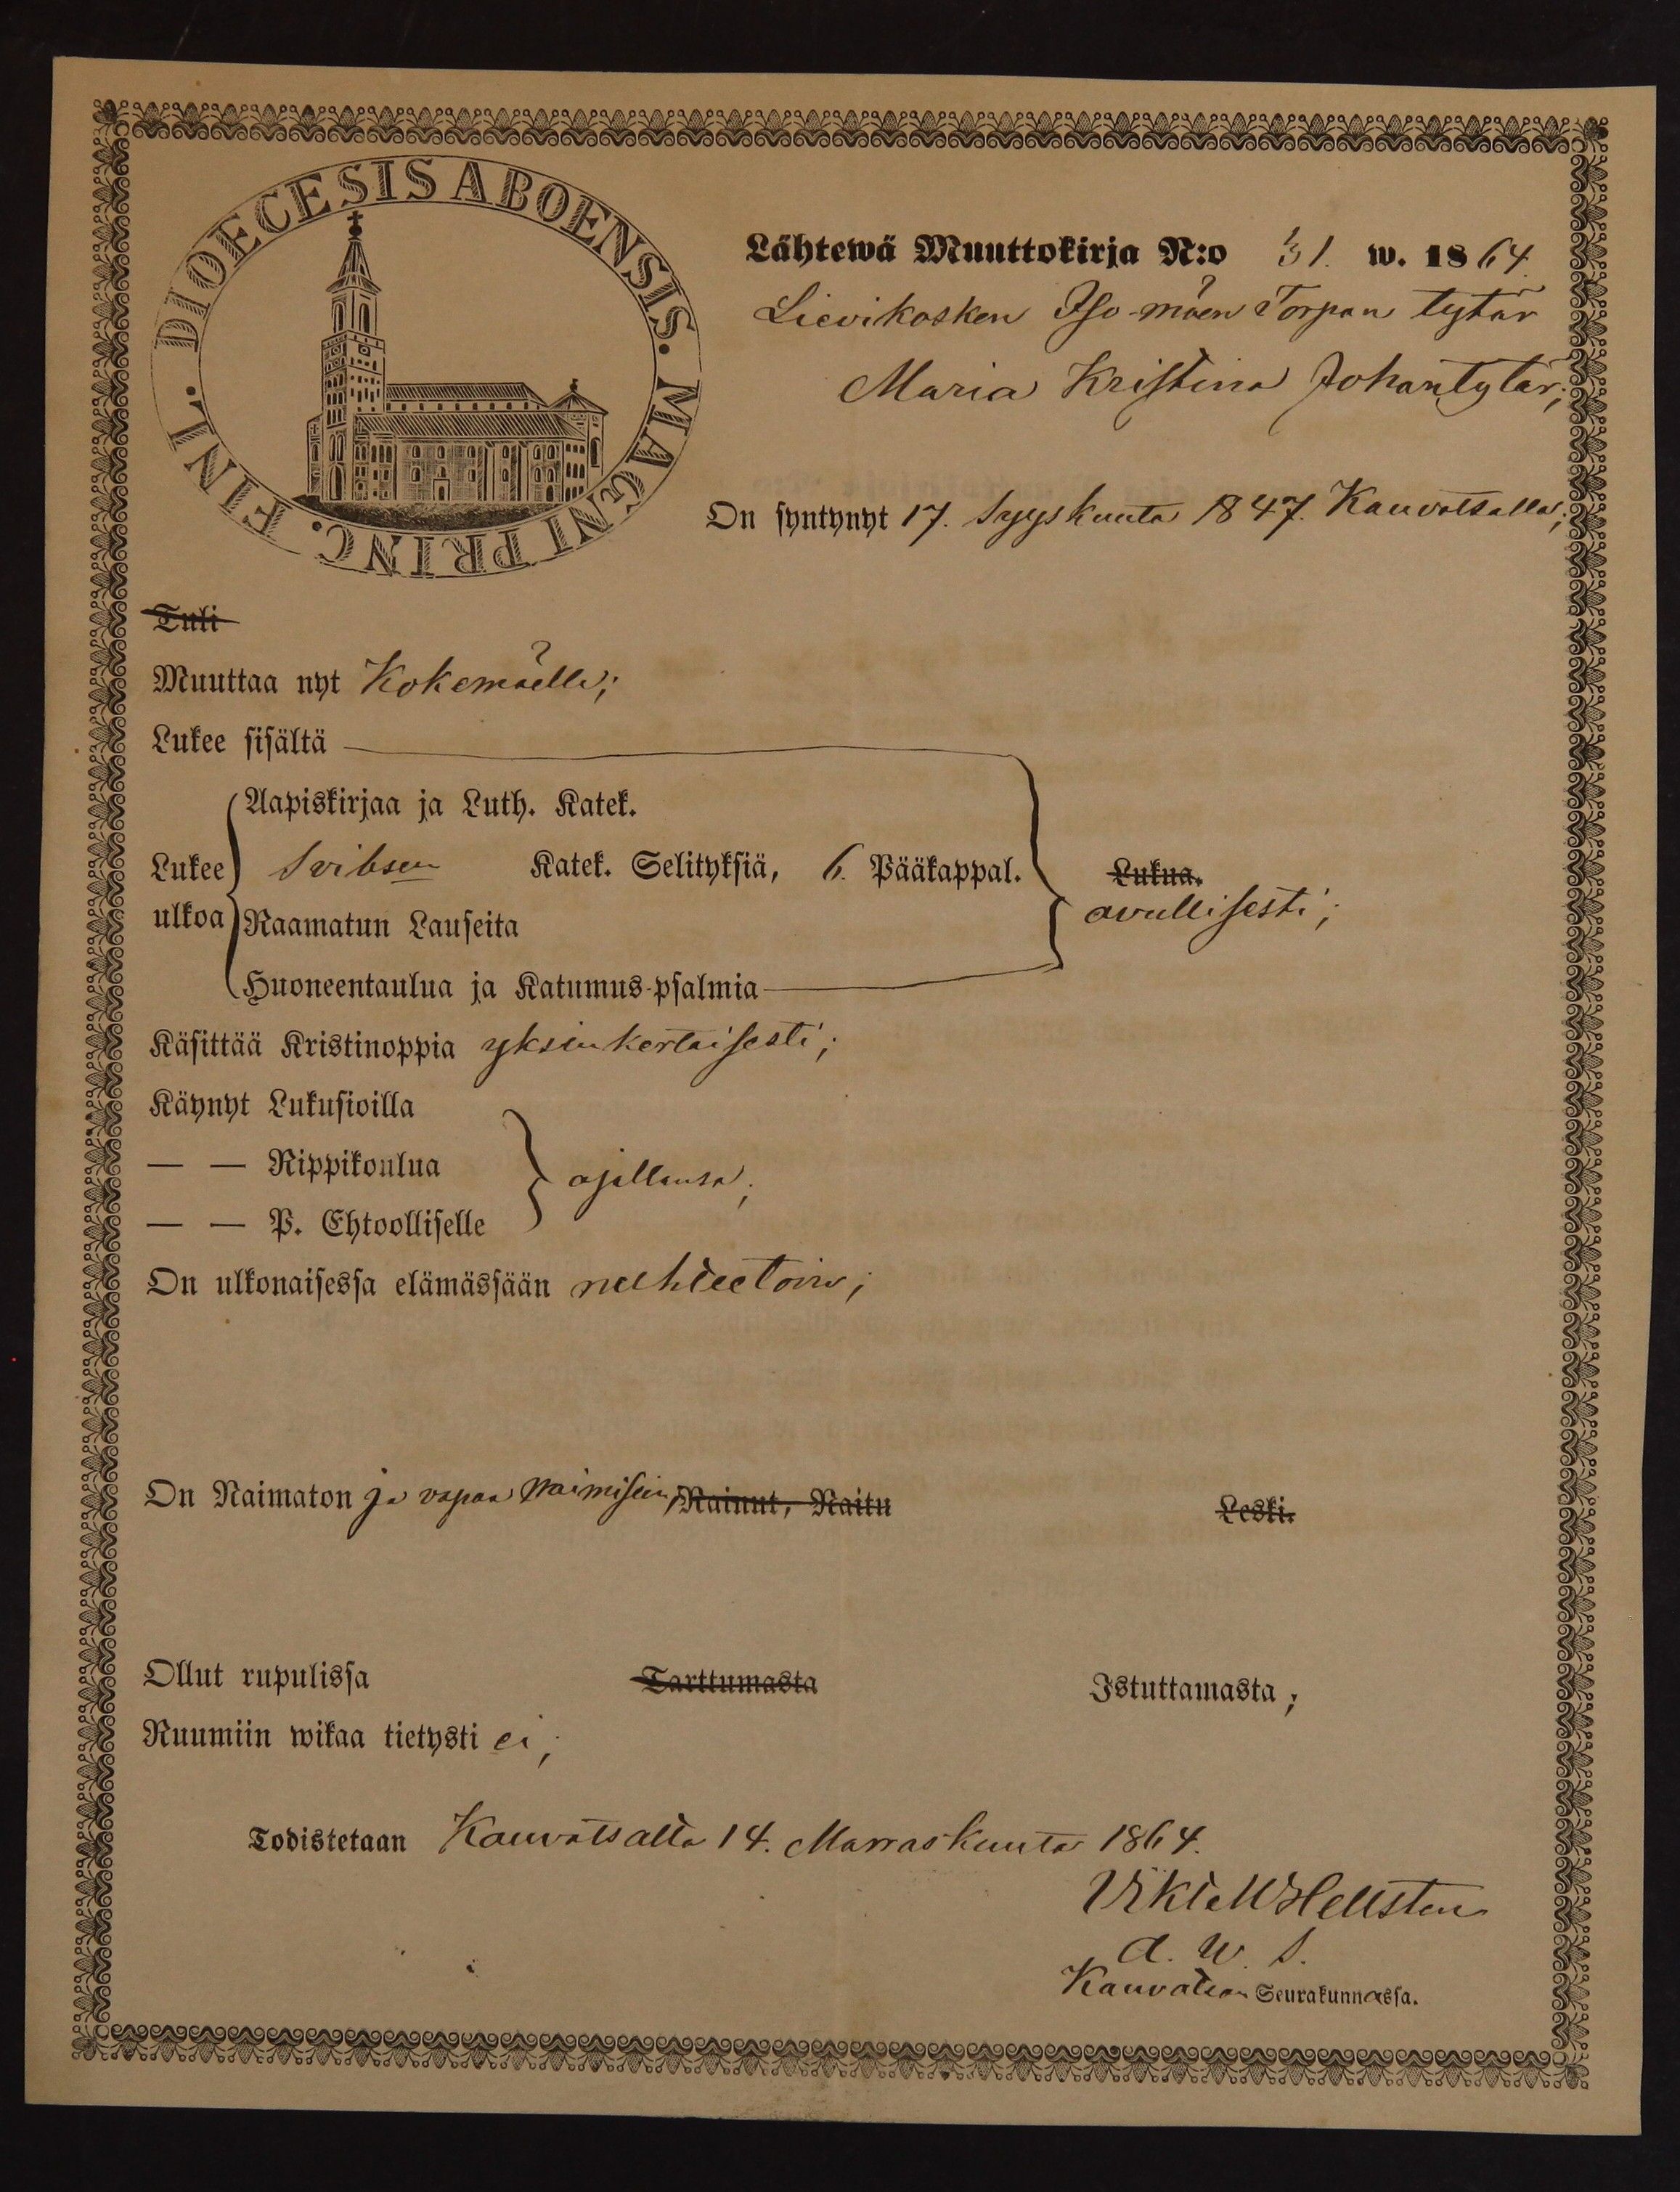 DIOECESIS ABOENSIS. MAGNI PRINC. FINL.
Lähtewä Muuttokirja N:o 31. w. 1864.
Lievikosken Iso-mäen Torpan tytär
Maria Kristina Johantytär;
On syntynyt 17. Syyskuuta 1847. Kauvatsalla;
Tuli
Muuttaa nyt Kokemäelle;
Lukee sisältä
Aapiskirjaa ja Luth. Katek.
Lukee ulkoa Svibsen Katek. Selityksiä, 6. Pääkappal. Lukua.
avullisesti;
Raamatun Lauseita
Huoneentaulua ja Katumus-psalmia
Käsittää Kristinoppia yksinkertaisesti;
Käynyt Lukusioilla
— — Rippikoulua ajallansa;
— — P. Ehtoolliselle
On ulkonaisessa elämässään nuhteetoin;
On Naimaton ja vapaa naimisiin; Nainut, Naitu Leski.
Ollut rupulissa Tarttumasta Istuttamasta;
Ruumiin wikaa tietysti ei;
Todistetaan Kauvatsalla 14. Marraskuuta 1864.
Hellsten
Kauvatsan Seurakunnassa.